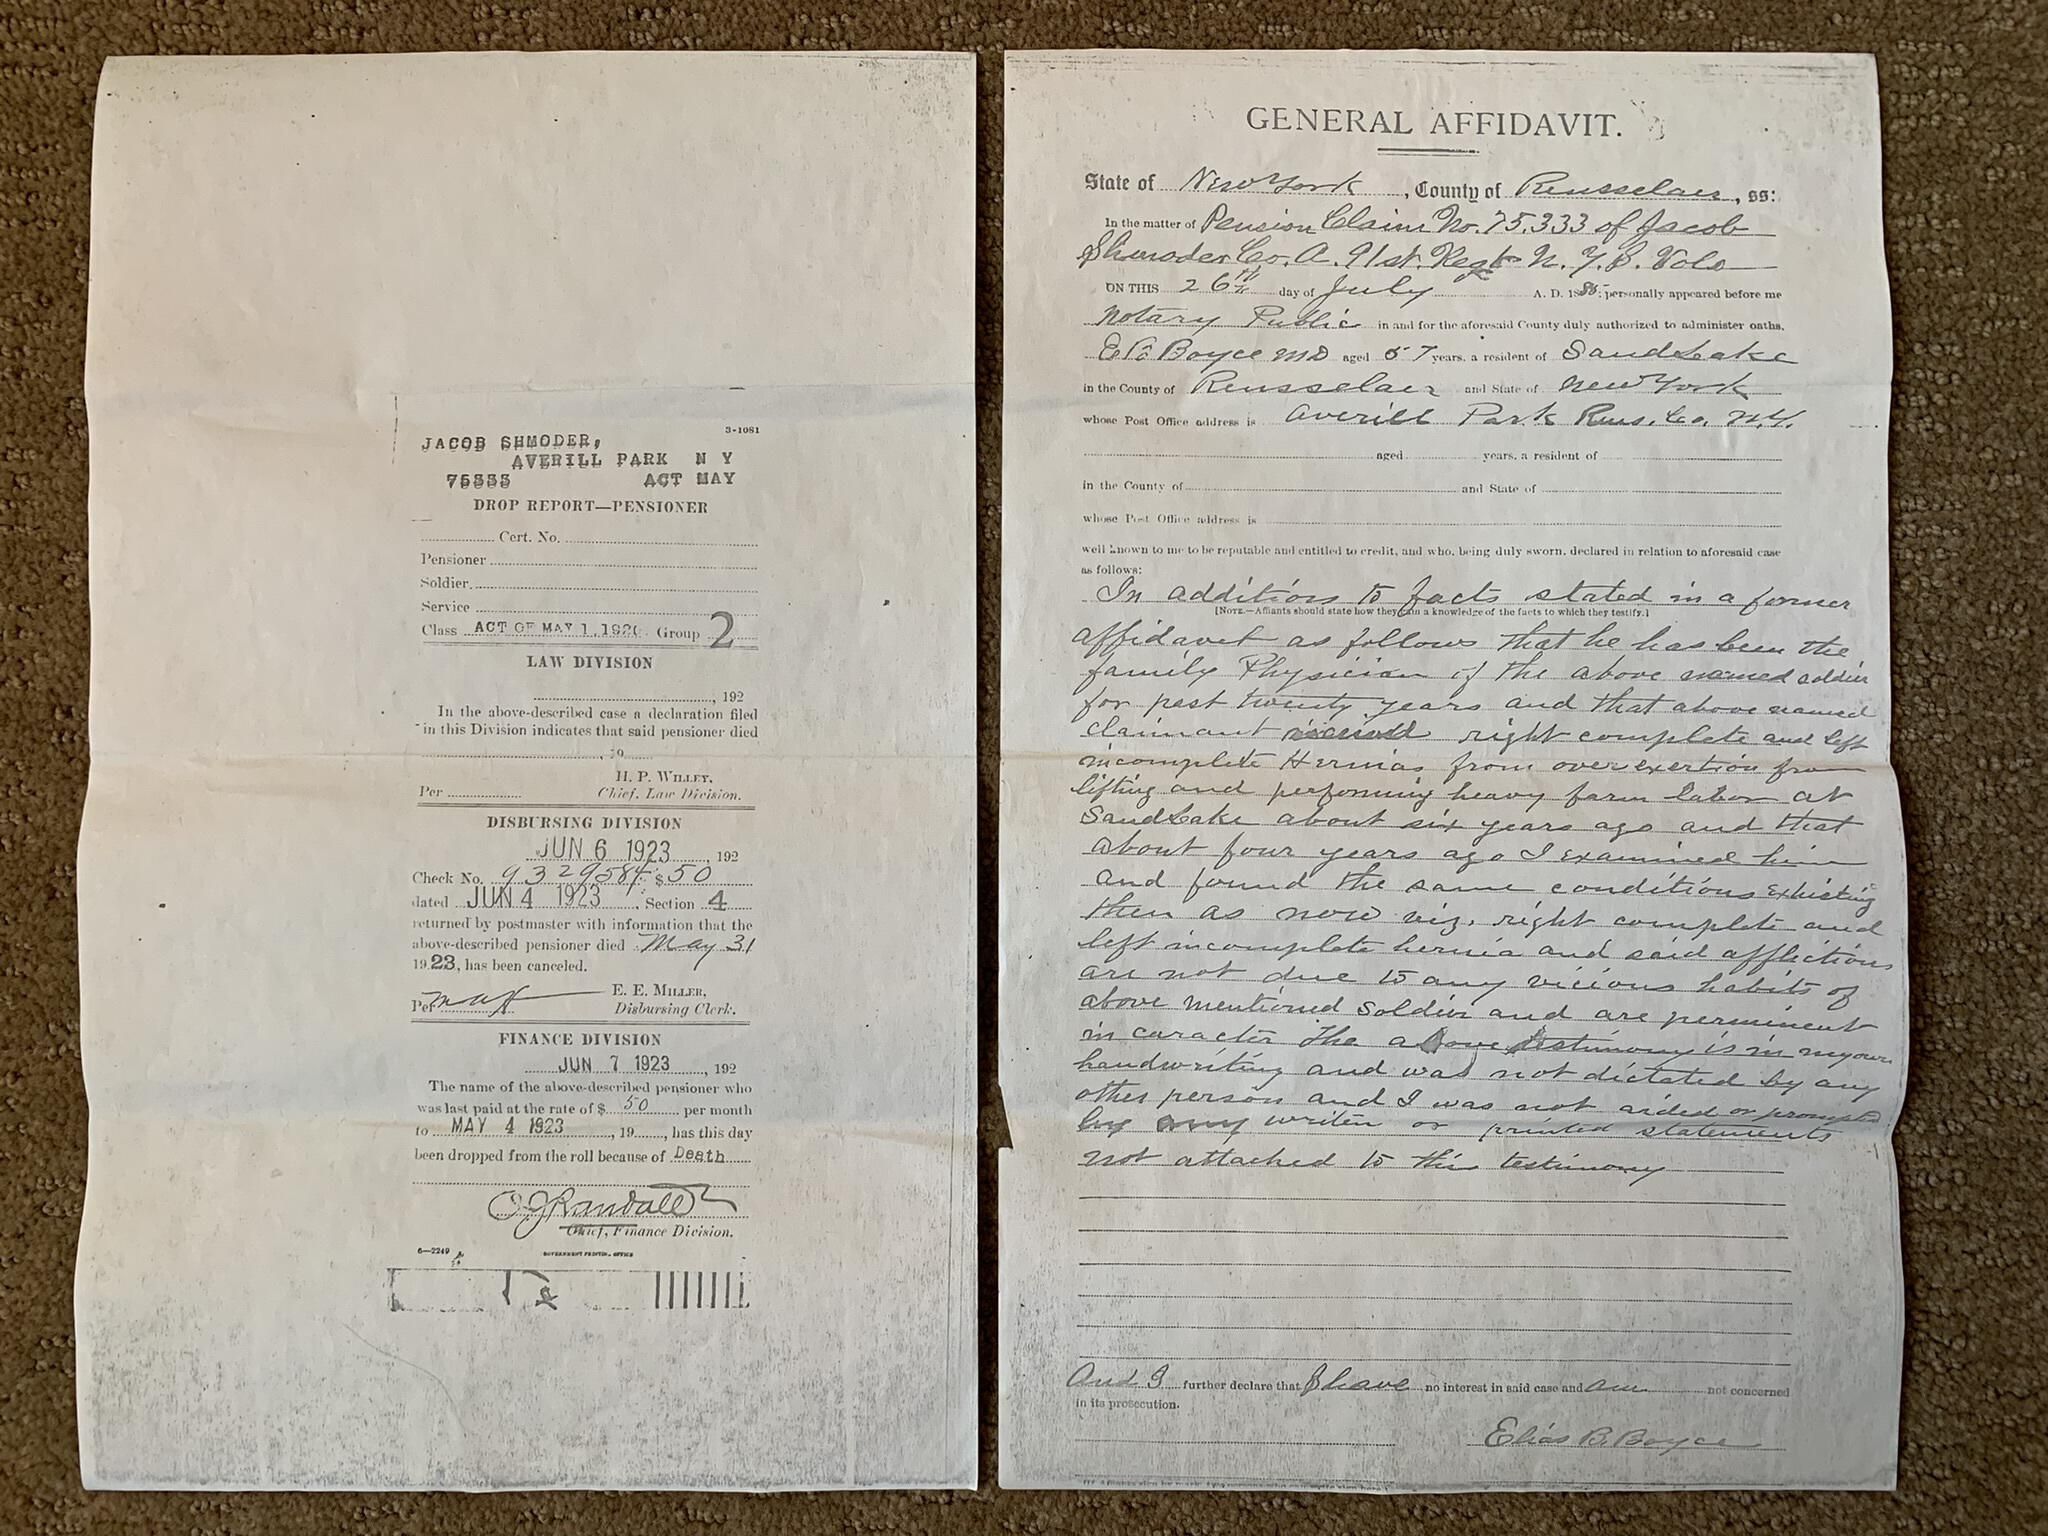 3-1081
JACOB SHMODER,
AVERILL PARK N Y
75333 ACT MAY
DROP REPORT—PENSIONER
Cert. No.
Pensioner
Soldier
Service
Class ACT OF MAY 1, 1920 Group 2
LAW DIVISION
, 192
In the above-described case a declaration filed
in this Division indicates that said pensioner died
, 19
H. P. WILLEY,
Per Chief, Law Division.
DISBURSING DIVISION
JUN 6 1923, 192
Check No. 9329584 $ 50
dated JUN 4 1923. Section 4
returned by postmaster with information that the
above-described pensioner died May 31
1923, has been canceled.
E. E. MILLER,
Per Disbursing Clerk.
FINANCE DIVISION
JUN 7 1923, 192
The name of the above-described pensioner who
was last paid at the rate of $ 50 per month
to MAY 4 1923, 19, has this day
been dropped from the roll because of Death
Randall
Chief, Finance Division.
6—2249 GOVERNMENT PRINTING OFFICE
GENERAL AFFIDAVIT.
State of New York, County of Rensselaer, ss:
In the matter of Pension Claim No. 75.333 of Jacob
Shmoder Co. A. 91st. Regt N. Y. Vols
ON THIS 26th day of July A. D. 18 personally appeared before me
Notary Public in and for the aforesaid County duly authorized to administer oaths,
E B Boyce MD aged 57 years, a resident of Sand Lake
in the County of Rensselaer and State of New York
whose Post Office address is Averill Park Rens. Co. N.Y.
aged years, a resident of
in the County of and State of
whose Post Office address is
well known to me to be reputable and entitled to credit, and who, being duly sworn, declared in relation to aforesaid case
as follows:
In addition to facts stated in a former
[NOTE.—Affiants should state how they gain a knowledge of the facts to which they testify.]
affidavit as follows that he has been the
family Physician of the above named soldier
for past twenty years and that above named
claimant right complete and left
incomplete Hernias from over exertion from
lifting and performing heavy farm labor at
Sand Lake about six years ago and that
about four years ago I examined him
and found the same conditions exhisting
then as now viz. right complete and
left incomplete hernia and said afflictions
are not due to any vicious habits of
above mentioned soldier and are perminent
in caracter The above testimony is in my own
handwriting and was not dictated by any
other person and I was not aided or prompted
by any writen or printed statements
not attached to this testimony
And I further declare that I have no interest in said case and am not concerned
in its prosecution.
Elias B. Boyce